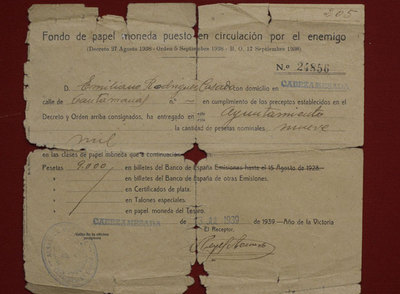 205
Fondo de papel moneda puesto en circulación por el enemigo
(Decreto 27 Agosto 1938 - Orden 5 Septiembre 1938 - B. O. 12 Septiembre 1938)
N.º 24856
D. Emiliano Rodríguez Casado con domicilio en CABEZAMESADA
calle de Santa Ana 2 en cumplimiento de los preceptos establecidos en el
Decreto y Orden arriba consignados, ha entregado en Ayuntamiento
la cantidad de pesetas nominales nueve
mil
en las clases de papel moneda que a continuación
Pesetas 9.000 en billetes del Banco de España Emisiones hasta el 15 Agosto de 1928.
» en billetes del Banco de España de otras Emisiones.
» en Certificados de plata.
» en Talones especiales.
» en papel moneda del Tesoro.
CABEZAMESADA de JUL 1939 de 1939.—Año de la Victoria
El Receptor,
Sello de la oficina